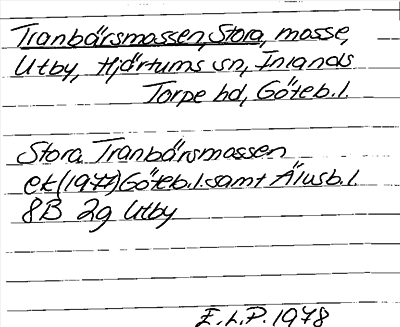 Tranbärsmossen, Stora, mosse,
Utby, Hjärtums sn, Inlands
Torpe hd, Göteb.l.
Stora Tranbärsmossen
ek (1977) Göteb.l. samt Älvsb.l.
8B 2g Utby
E.L.P. 1978